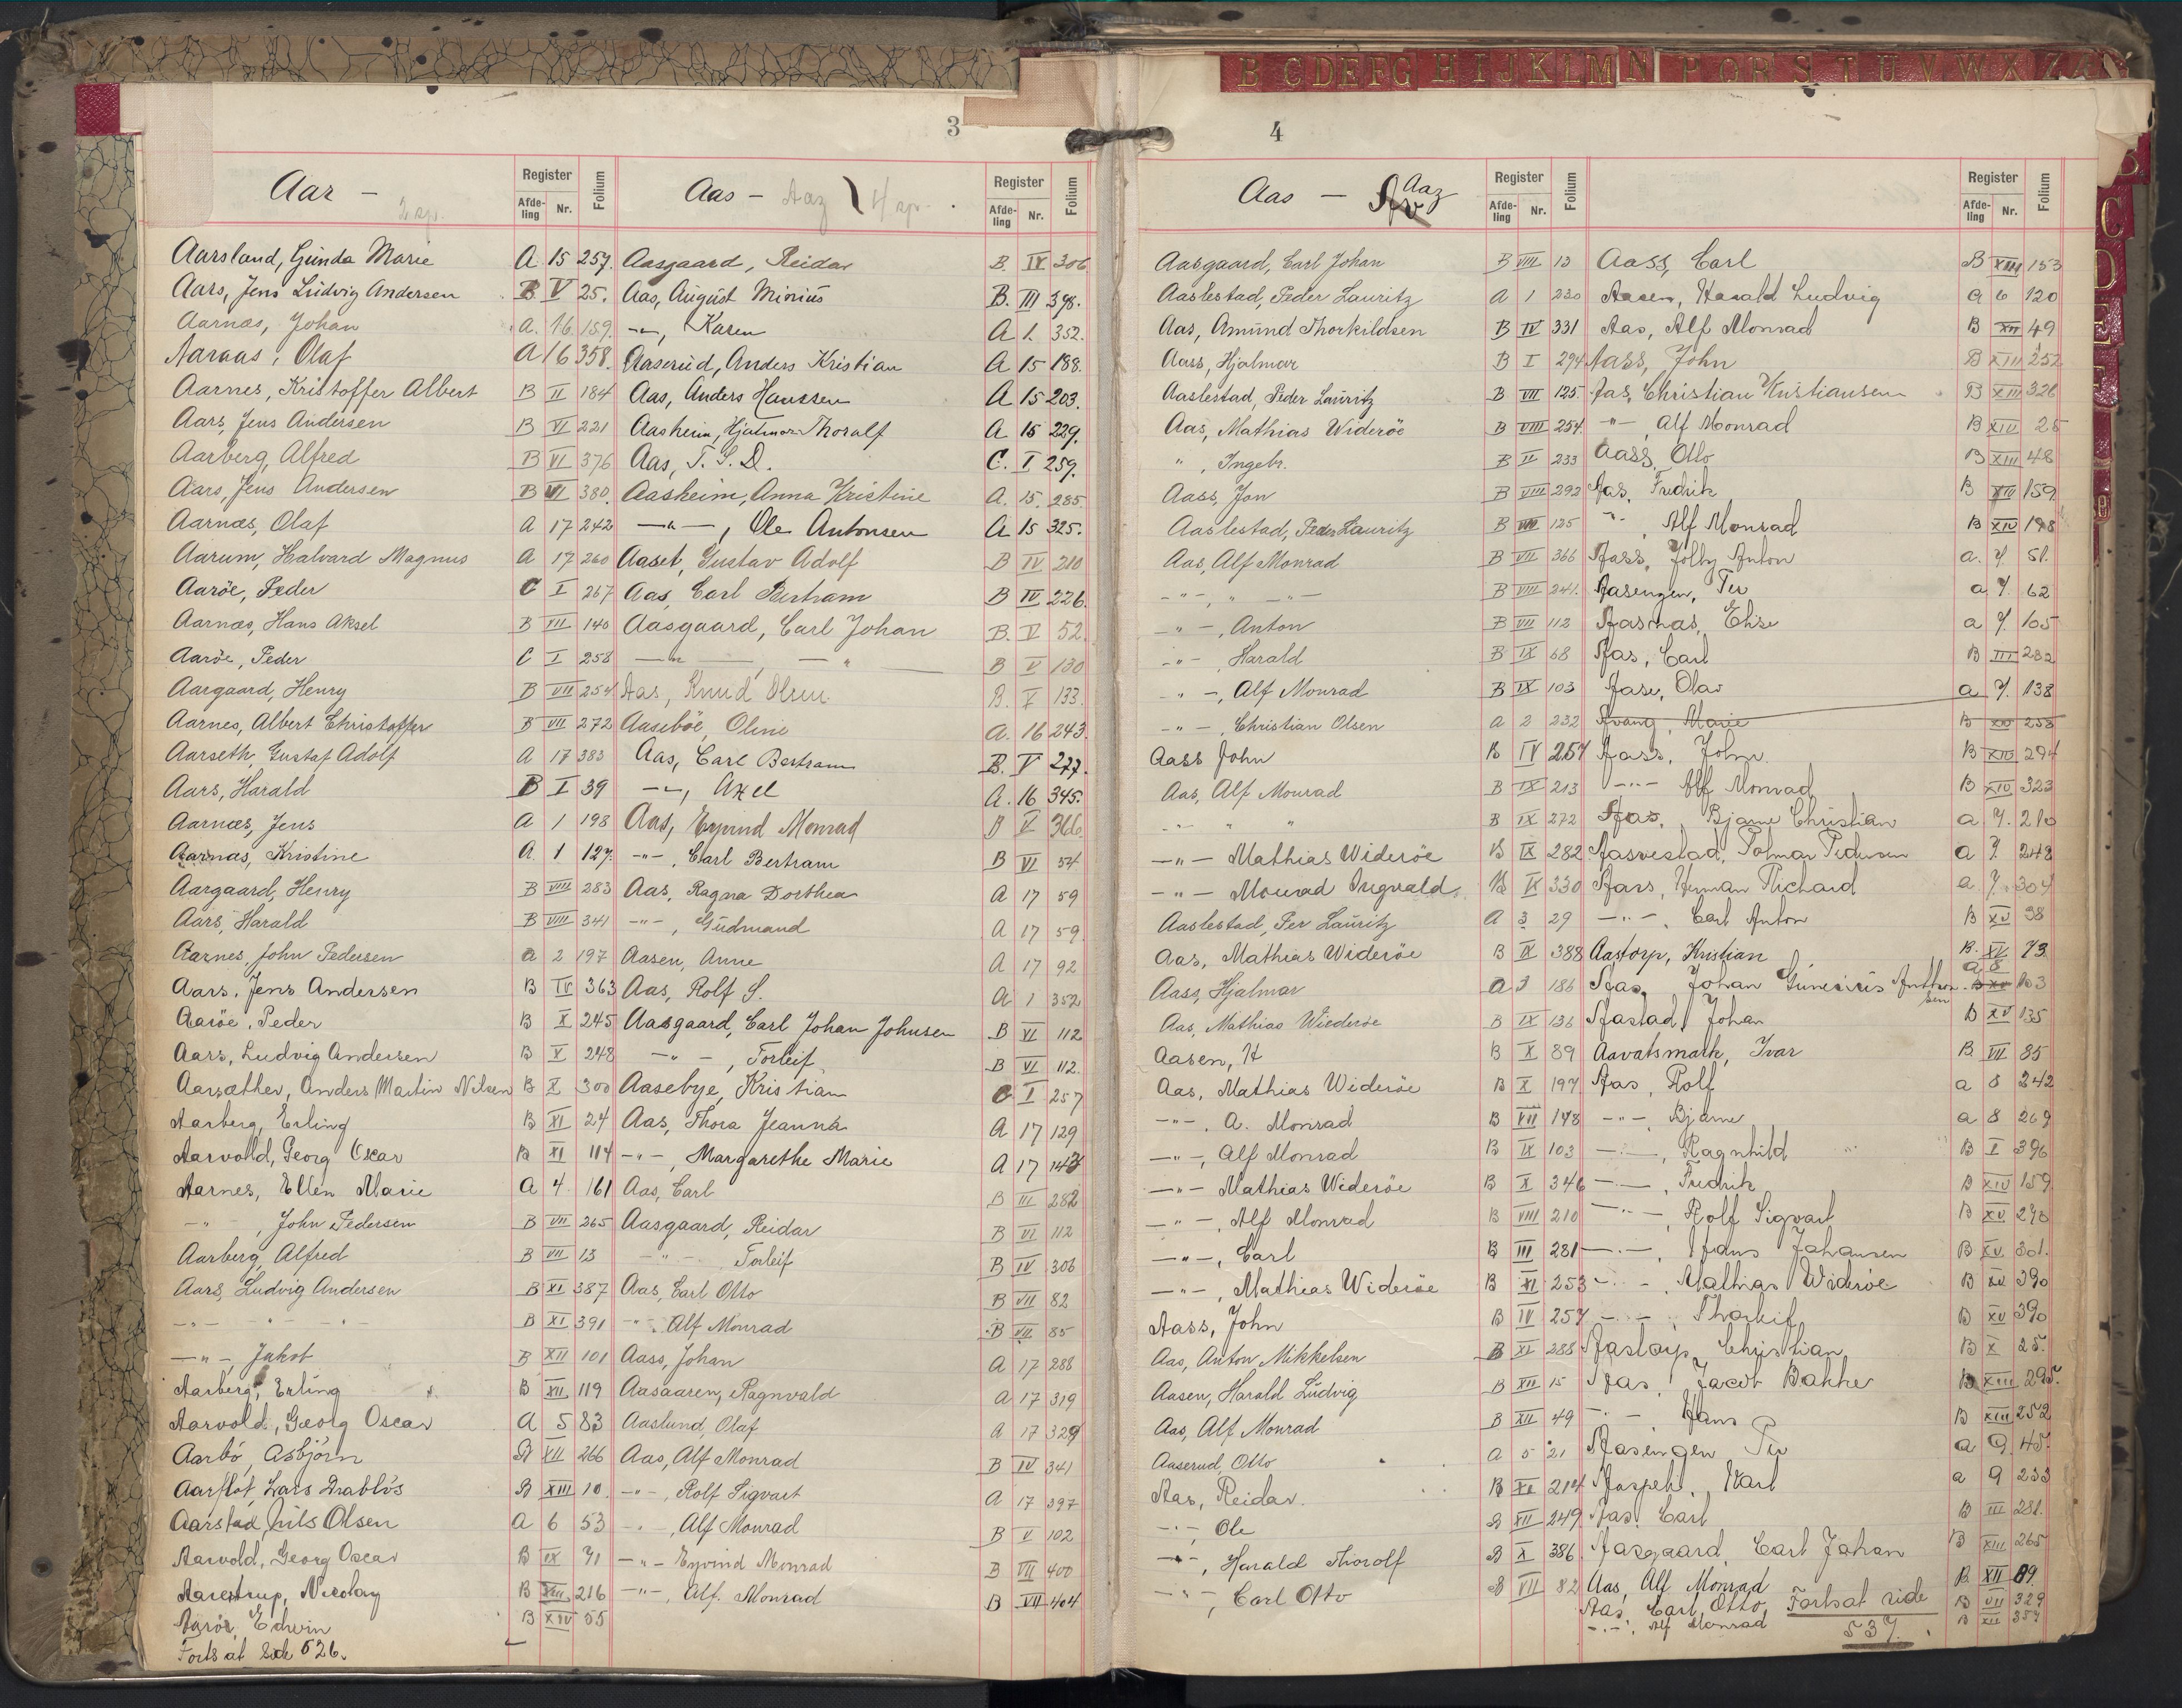 B C D E F G H I J K L M N P Q R S T U V W X Z Æ
3
Aar -
Register
Afde-ling Nr. Folium
Aarsland, Gunda Marie A 15 257.
Aars, Jens Ludvig Andersen B V 25.
Aarnæs, Johan A. 16 159.
Aaraas, Olaf A 16 358.
Aarnes, Kristoffer Albert B II 184
Aars, Jens Andersen B VI 221
Aarberg, Alfred B VI 376
Aars, Jens Andersen B VI 380.
Aarnæs, Olaf A 17 242
Aarum, Halvard Magnus A 17 260
Aaröe, Peder C I 267
Aarnæs, Hans Aksel B VII 140
Aaröe, Peder C I 258
Aargaard, Henry B VII 254
Aarnes, Albert Christoffer B VII 272
Aarseth, Gustaf Adolf A 17 383
Aars, Harald B I 39
Aarnæs, Jens A 1 198
Aarnæs, Kristine A. 1 127.
Aargaard, Henry B VIII 283
Aars, Harald B VIII 341
Aarnes, John Pedersen a 2 197
Aars, Jens Andersen B IV 363
Aaröe, Peder B X 245
Aars, Ludvig Andersen B X 248
Aarsæther, Anders Martin Nilsen B X 300
Aarberg, Erling B XI 24
Aarvold, Georg Oscar B XI 114
Aarnes, Ellen Marie A 4 161
-"- , John Pedersen B VII 265
Aarberg, Alfred B VII 13
Aars, Ludvig Andersen B XI 387
-"- -"- -"- B XI 391
-"-, Jakob B XII 101
Aarberg, Erling B XII 119
Aarvold, Georg Oscar A 5 83
Aarbö, Asbjörn B XII 266
Aarflot, Lars Drabløs B XIII 10.
Aarstad, Nils Olsen A 6 53
Aarvold, Georg Oscar B IX 71
Aarestrup, Nicolay B XIII 216
Aaröe, Edwin B XIV 55
Forts at side 526.
Aas - Aaz
Register
Afde-ling Nr. Folium
Aasgaard, Reidar B. IX 306
Aas, August Minius B. III 398.
-"-, Karen A 1. 352.
Aaserud, Anders Kristian A 15 188.
Aas, Anders Hanssen A 15 203.
Aasheim, Hjalmar Thoralf A 15 229.
Aas, T. S. D. C. I 259.
Aasheim, Anna Kristine A. 15. 285.
-"-, Ole Antonsen A 15 325.
Aaset, Gustav Adolf B IV 210
Aas, Carl Bertram B IV 226.
Aasgaard, Carl Johan B. V 52.
-"- -"- B V 130
Aas, Knud Olsen B. V 133.
Aaseböe, Oline A. 16 243.
Aas, Carl Bertram B. V 277.
-"-, Axel A. 16 345.
Aas, Eyvind Monrad B V 366.
-"-, Carl Bertram B VI 54.
Aas, Ragna Dorthea A 17 59
-"-, Gudmund A 17 59.
Aasen, Anne A 17 92
Aas, Rolf S. A 1 352
Aasgaard, Carl Johan Johnsen B VI 112
-"-, Torleif B VI 112.
Aasebye, Kristian C I 257
Aas, Thora Jeanna A 17 129
-"-, Margarethe Marie A 17 143
Aas, Carl B III 282
Aasgaard, Reidar B VI 112
-"- Torleif B IV 306
Aas, Carl Otto B VII 82
-"-, Alf Monrad B VII 85
Aass, Johan A 17 288
Aasaaren, Ragnvald A 17 319
Aaslund, Olaf A 17 329
Aas, Alf Monrad B IV 341
-"-, Rolf Sigvart A 17 397
-"-, Alf Monrad B V 102
-"- Eyvind Monrad B VII 400
-"-, Alf. Monrad B VII 404
4
Aas - Aaz
Register
Afde-ling Nr. Folium
Aasgaard, Carl Johan B VIII 13
Aaslestad, Peder Lauritz A 1 230
Aas, Amund Thorkildsen B IV 331
Aass, Hjalmar B I 294
Aaslestad, Peder Lauritz B VII 125.
Aas, Mathias Wideröe B VIII 254.
", Ingebr. B II 233
Aass, Jon B VIII 292
Aaslestad, Peder Lauritz B VII 125
Aas, Alf Monrad B VII 366
-"-, " -"- B VIII 241.
-"-, Anton B VII 112
-"- Harald B IX 68
-"-, Alf Monrad B IX 103
-"-, Christian Olsen A 2 232
Aass John B IV 257
Aas, Alf Monrad B IX 213
-"- " " B IX 272
-"- Mathias Wideröe B IX 282
-"- Monrad Ingvald B IX 330
Aaslestad, Per Lauritz A 3 29
Aas, Mathias Wideröe B IX 388
Aass, Hjalmar a 3 186
Aas, Mathias Wiederöe B IX 136
Aasen, H B X 89
Aas, Mathias Wideröe B X 197
-"-, A. Monrad B VII 148
-"-, Alf Monrad B IX 103
-"- Mathias Wideröe B X 346
-"-, Alf Monrad B VIII 210
-"-, Carl B III 281
-"-, Mathias Wideröe B XI 253
Aass, John B IV 257
Aas, Anton Mikkelsen B XI 288
Aasen, Harald Ludvig B XII 15
Aas, Alf Monrad B XII 49
Aaserud, Otto A 5 21
Aas, Reidar. B XI 214
-"- Ole B XII 249
-"-, Harald Thorolf B X 386.
-"-, Carl Otto B VII 82
Register
Afde-ling Nr. Folium
Aass, Carl B XIII 153
Aasen, Harald Ludvig a 6 120
Aas, Alf Monrad B XII 49
Aass, John B XIII 252
Aas, Christian Kristiansen B XIII 326
-"-, Alf Monrad B XIV 25
Aass, Otto B XIII 48
Aas, Fredrik B XIV 159
-"- Alf Monrad B XIV 198
Aass, Jolly Anton a. 7. 51.
Aasengen, Per a 7. 62
Aasnas, a 7. 105
Aas, Carl B III 282
Aase, Olav a 7. 138
Avang, Marie B XIV 253
Aass, John B XIV 294
-"- Alf Monrad B XIV 323
Aas, Bjarne Christian a 7. 210
Aasvestad, Pedersen a 7. 248
Aars, Herman Richard a 7. 304
-"-, Carl Anton B XV 38
Aastorp, Kristian B. XV 73
Aas, Johan a 8 103
Aastad, Johan B XV 135
Aavatsmark, Ivar B VII 85
Aas, Rolf a 8 242
-"-, Bjarne a 8 269
-"-, Ragnhild B I 396
-"-, Fredrik B XIV 159
-"-, Rolf Sigvart B XV 290
-"-, Hans Johansen B XV 301.
-"-, Mathias Wideröe B XV 390
-"-, Thorleif B XV 390
Aastorp, Christian B X 25.
Aas, Jacob Bakke B XIII 295.
-"-, Hans B XIII 252
Aasengen Per a 9. 45.
Karl a 9 233
Aas, Carl B III 281.
Aasgaard, Carl Johan B XIII 265
Aas, Alf Monrad B XII 89
Aas, Carl Otto, B VII 329
-"-, Alf Monrad B XII 357
Fortsat side
537.